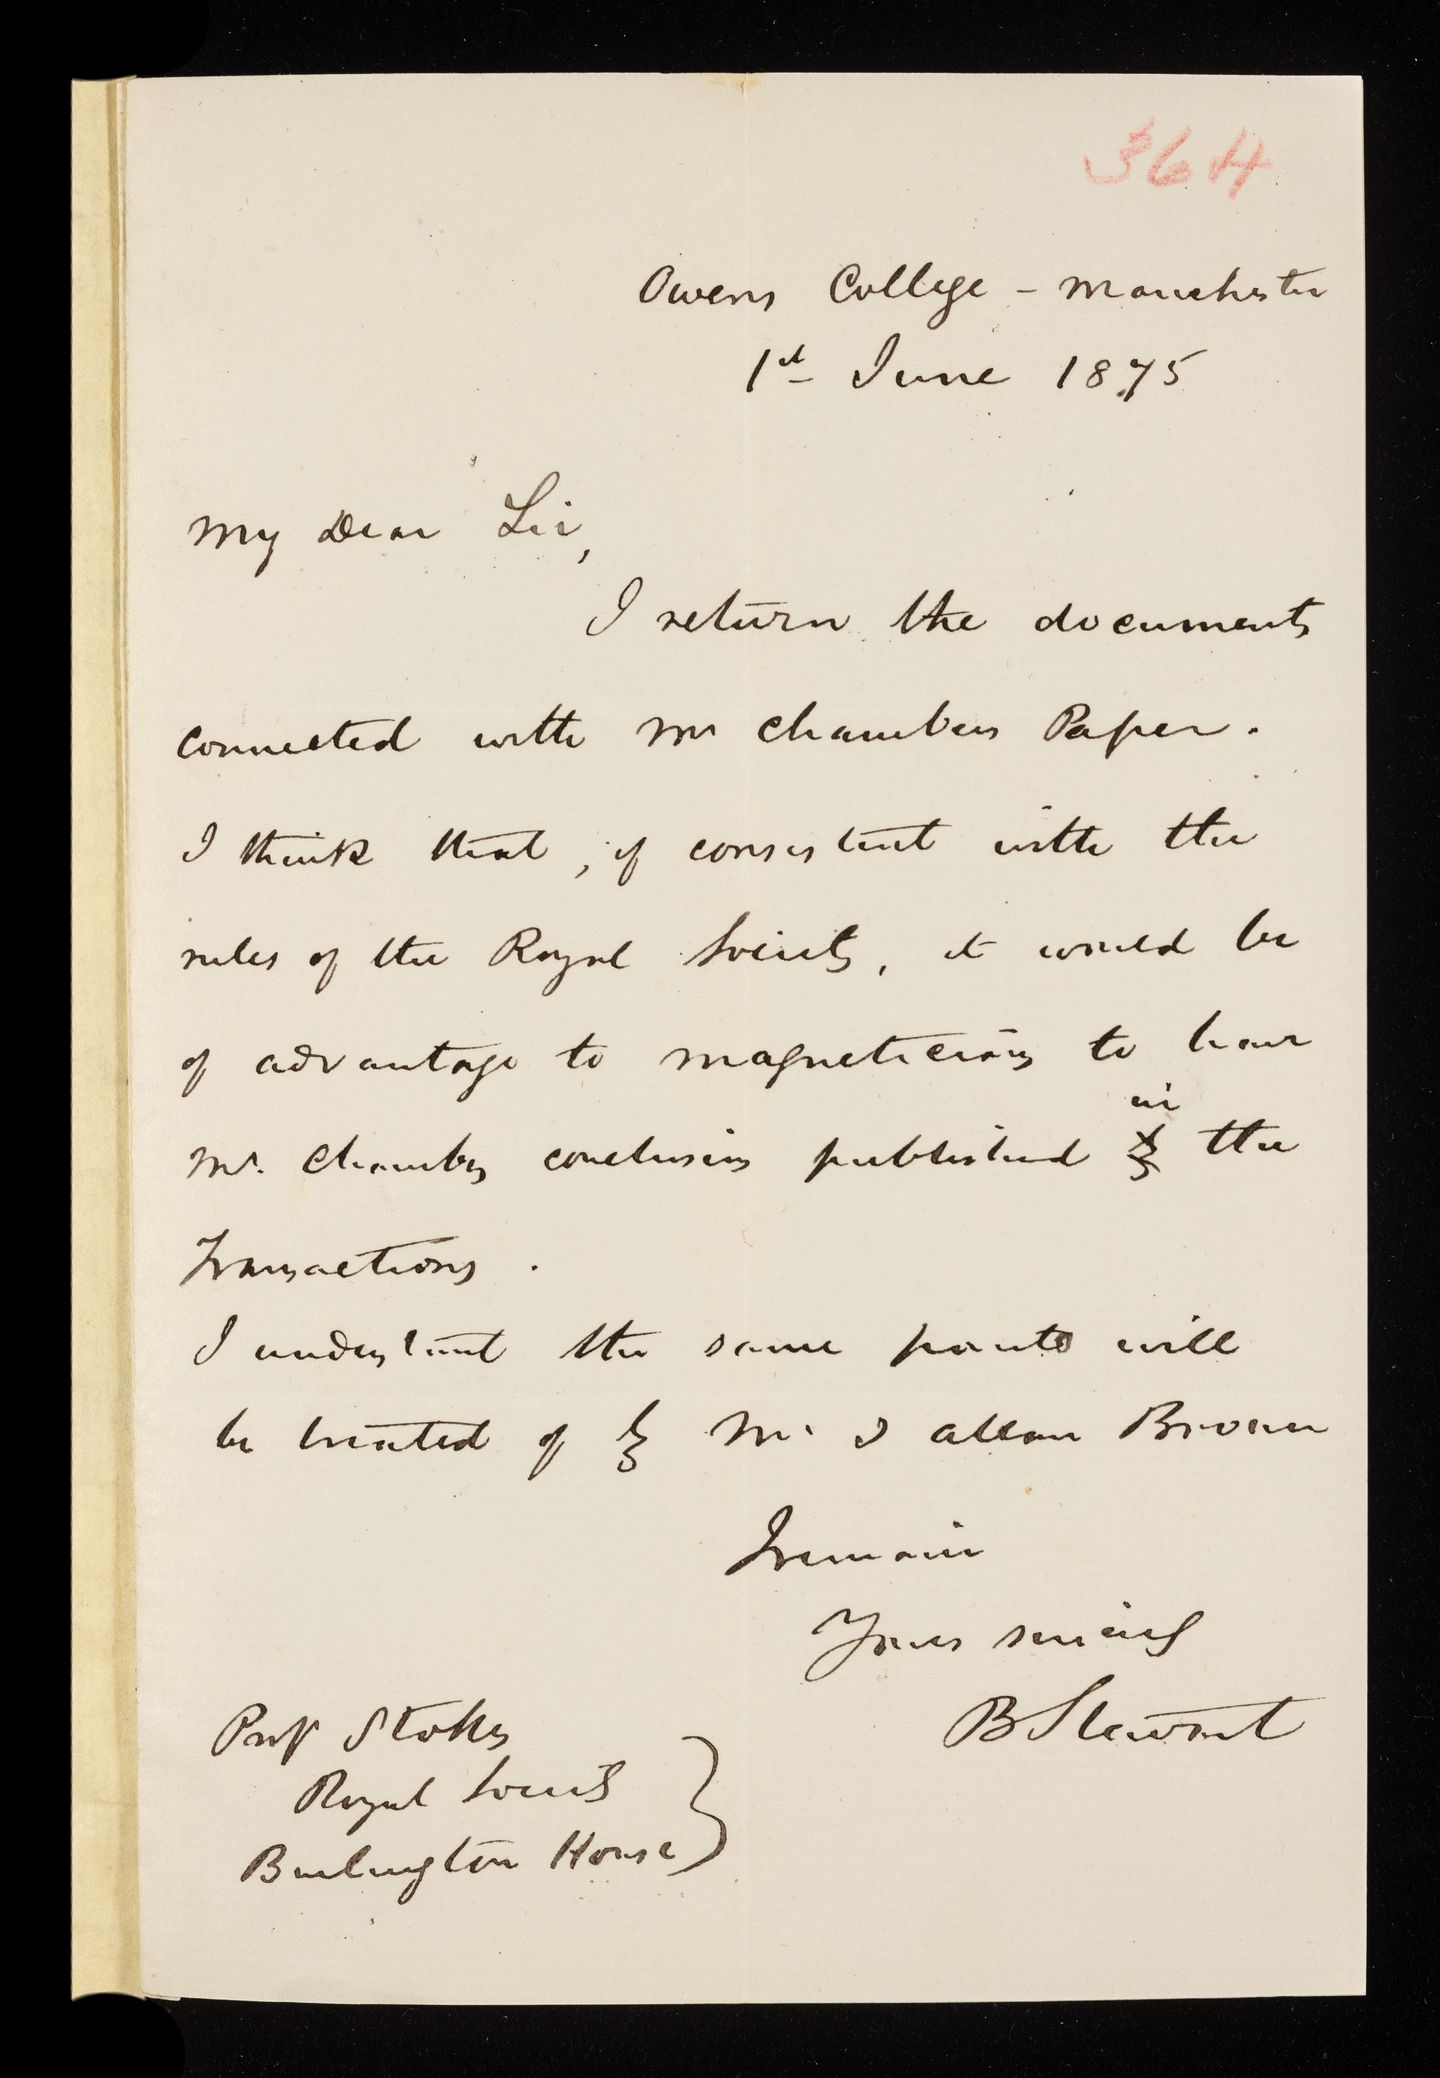 364
Owens College - Manchester
1st June 1875
My Dear Sir,
I return the documents
connected with Mr Chambers Paper.
I think that, if consistent with the
rules of the Royal Society, it would be
of advantage to magneticians to have
in
Mr. Chambers conclusions published by the
Transactions.
I understand the same points will
be treated of by Mr J Allan Broun
I remain
Yours sincerely
B Stewart
Prof Stokes
Royal Society
Burlington House